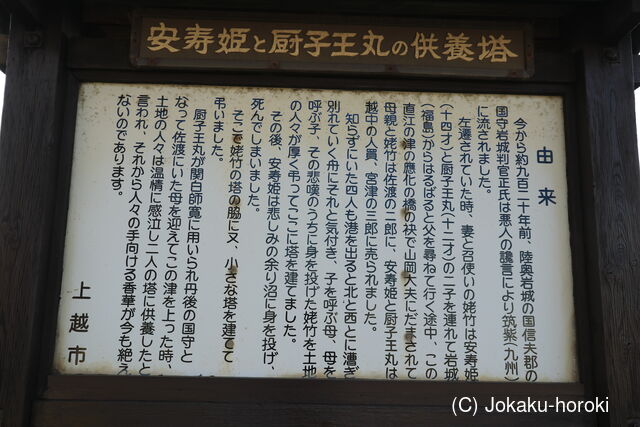 安寿姫と厨子王丸の供養塔
由来
今から約九百二十年前、陸奥岩城の国信夫郡の
国守岩城判官正氏は悪人の讒言により筑紫(九州)
に流されました。
左遷されていた時、妻と召使いの姥竹は安寿姫
(十四才)と厨子王丸(十二才)の二子を連れて岩城
(福島)からはるばると父を尋ねて行く途中、この
直江の津の應化の橋の袂で山岡大夫にだまされて
母親と姥竹は佐渡の二郎に、安寿姫と厨子王丸は
越中の人買、宮津の三郎に売られました。
知らずにいた四人も港を出ると北と西とに漕ぎ
別れていく舟にそれと気付き、子を呼ぶ母、母を
呼ぶ子、その悲嘆のうちに身を投げた姥竹を土地
の人々が厚く弔ってここに塔を建てました。
その後、安寿姫は悲しみの余り沼に身を投げ、
死んでしまいました。
そこで姥竹の塔の脇に又、小さな塔を建てて
弔いました。
厨子王丸が関白師寛に用いられ丹後の国守と
なって佐渡にいた母を迎えてこの津を上った時、
土地の人々は温情に感泣し二人の塔に供養したと
言われ、それから人々の手向ける香華が今も絶え
ないのであります。
上越市
(C) Jokaku-horoki